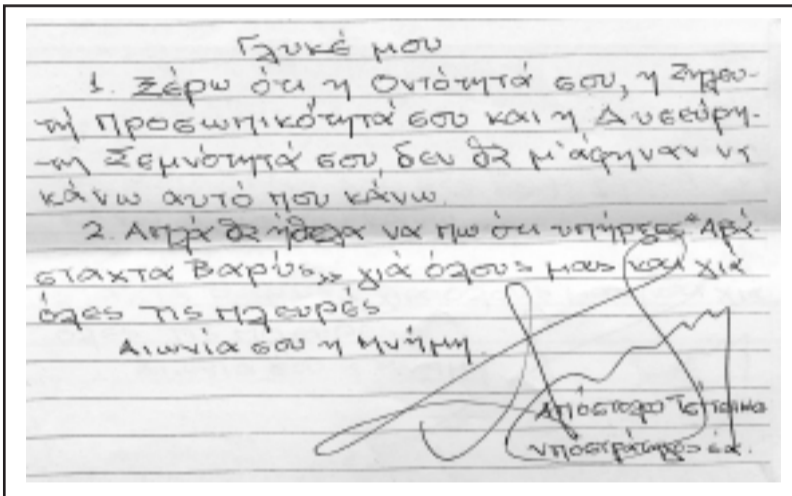 Γλυκέ μου
1. Ξέρω ότι, η Οντότητά σου, η Ζηλευ-
τή Προσωπικότητά σου και η Δυσεύρη-
τη Σεμνότητά σου, δεν θα μ' άφηναν να
κάνω αυτό που κάνω.
2. Απλά θα ήθελα να πω ότι υπήρξες "Αβά-
σταχτα Βαρύς» γιά όλους μας και για
όλες τις πλευρές
Αιωνία σου η Μνήμη.
Απόστολος
υποστράτηγος ε.α.